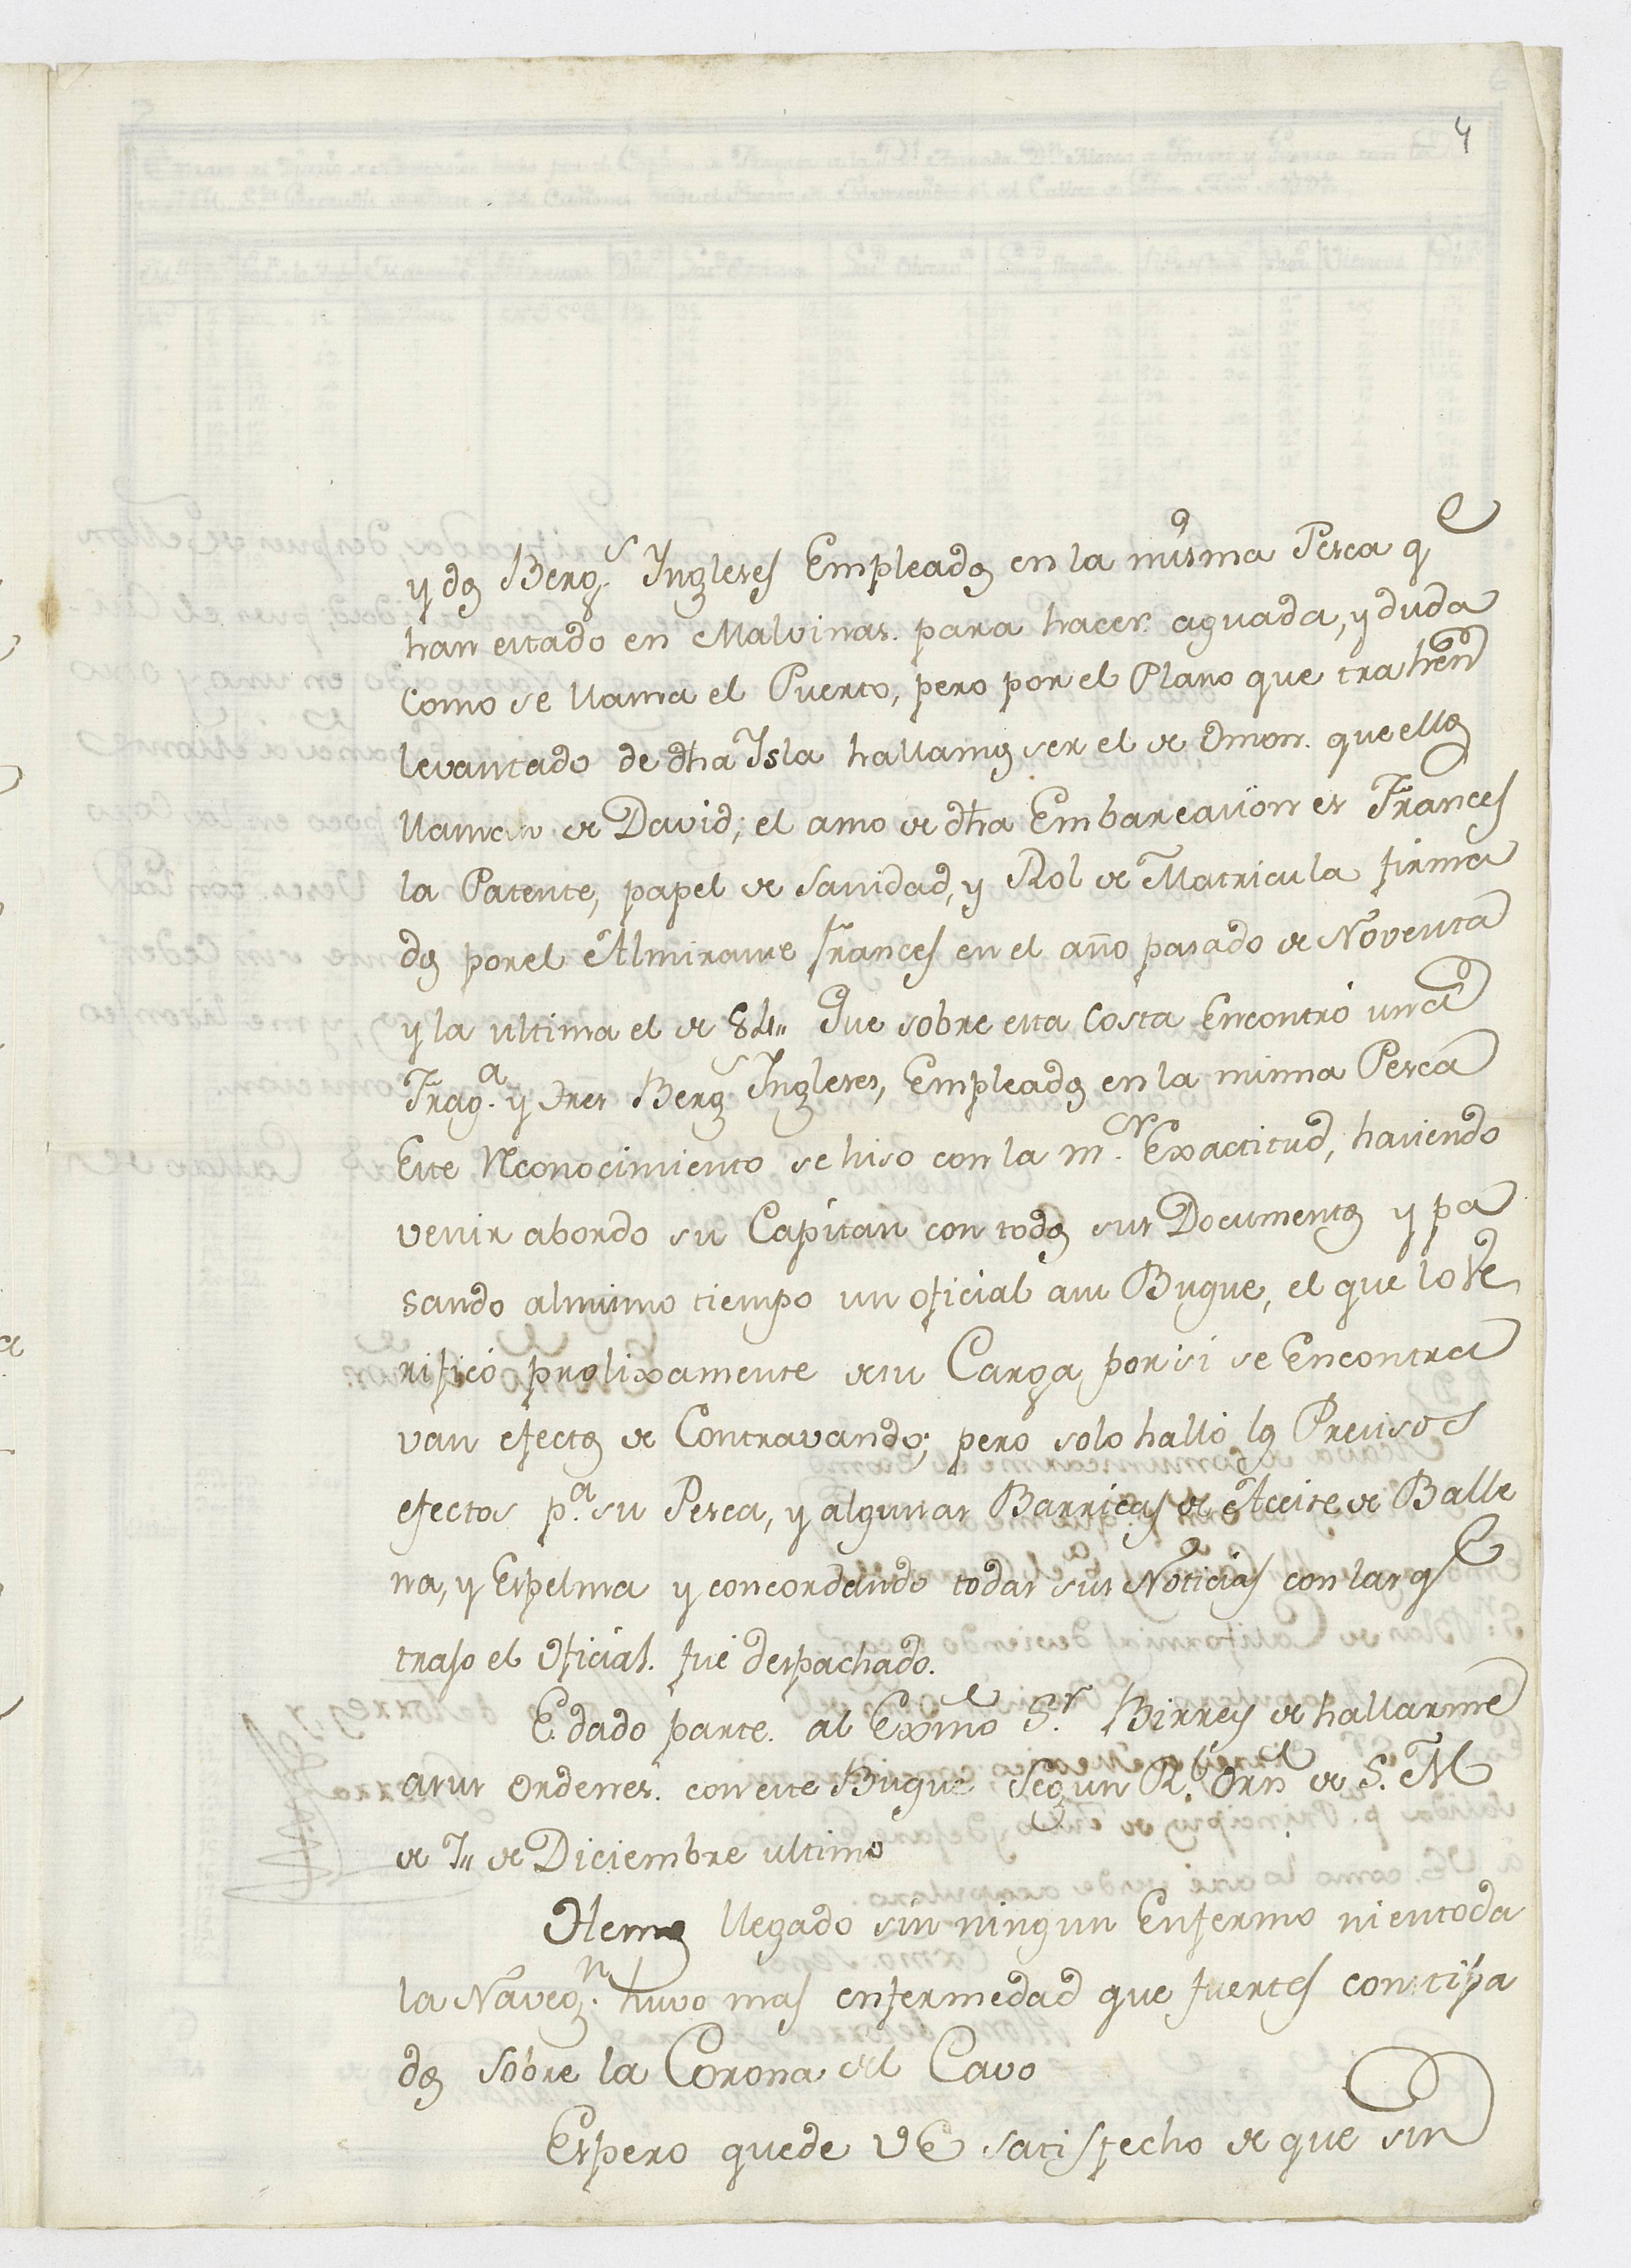 4
y dos Berg.s Ingleses Empleados en la misma Pesca q.e
han estado en Malvinas. para hacer aguada, y duda
como se llama el Puerto, pero por el Plano que trahen
levantado de dha Isla hallamos ser el de Omon. que ellos
llaman de David; el amo de dha Embarcacion es Frances
la Patente, papel de Sanidad, y Rol de Matricula firma
dos por el Almirante frances en el año pasado de Noventa
y la ultima el de 84,, Que sobre esta Costa Encontró una
Frag.a y tres Berg.s Ingleses, Empleados en la misma Pesca
Este Reconocimiento se hiso con la m.or Exactitud, haciendo
venir abordo su Capitan con todos sus Documentos y pa
sando al mismo tiempo un oficial a su Buque, el que lo Ve
rificó prolixamente de su Carga por si se Encontra
van efectos de Contravando; pero solo halló los Precisos
efectos p.a su Pesca, y algunas Barricas de Aceite de Balle
na, y Espelma y concordando todas sus Noticias con las q.e
trajo el Oficial. fue despachado.
E dado parte. al Exmo S.r Birrey de hallarme
a sus Ordenes. con este Buque Segun R.l Orn de S. M
de 7,, de Diciembre ultimo
Hemos llegado sin ningun Enfermo ni en toda
la Naveg.n huvo mas enfermedad que fuertes constipa
dos sobre la Corona del Cavo
Espero quede VE satisfecho de que sin